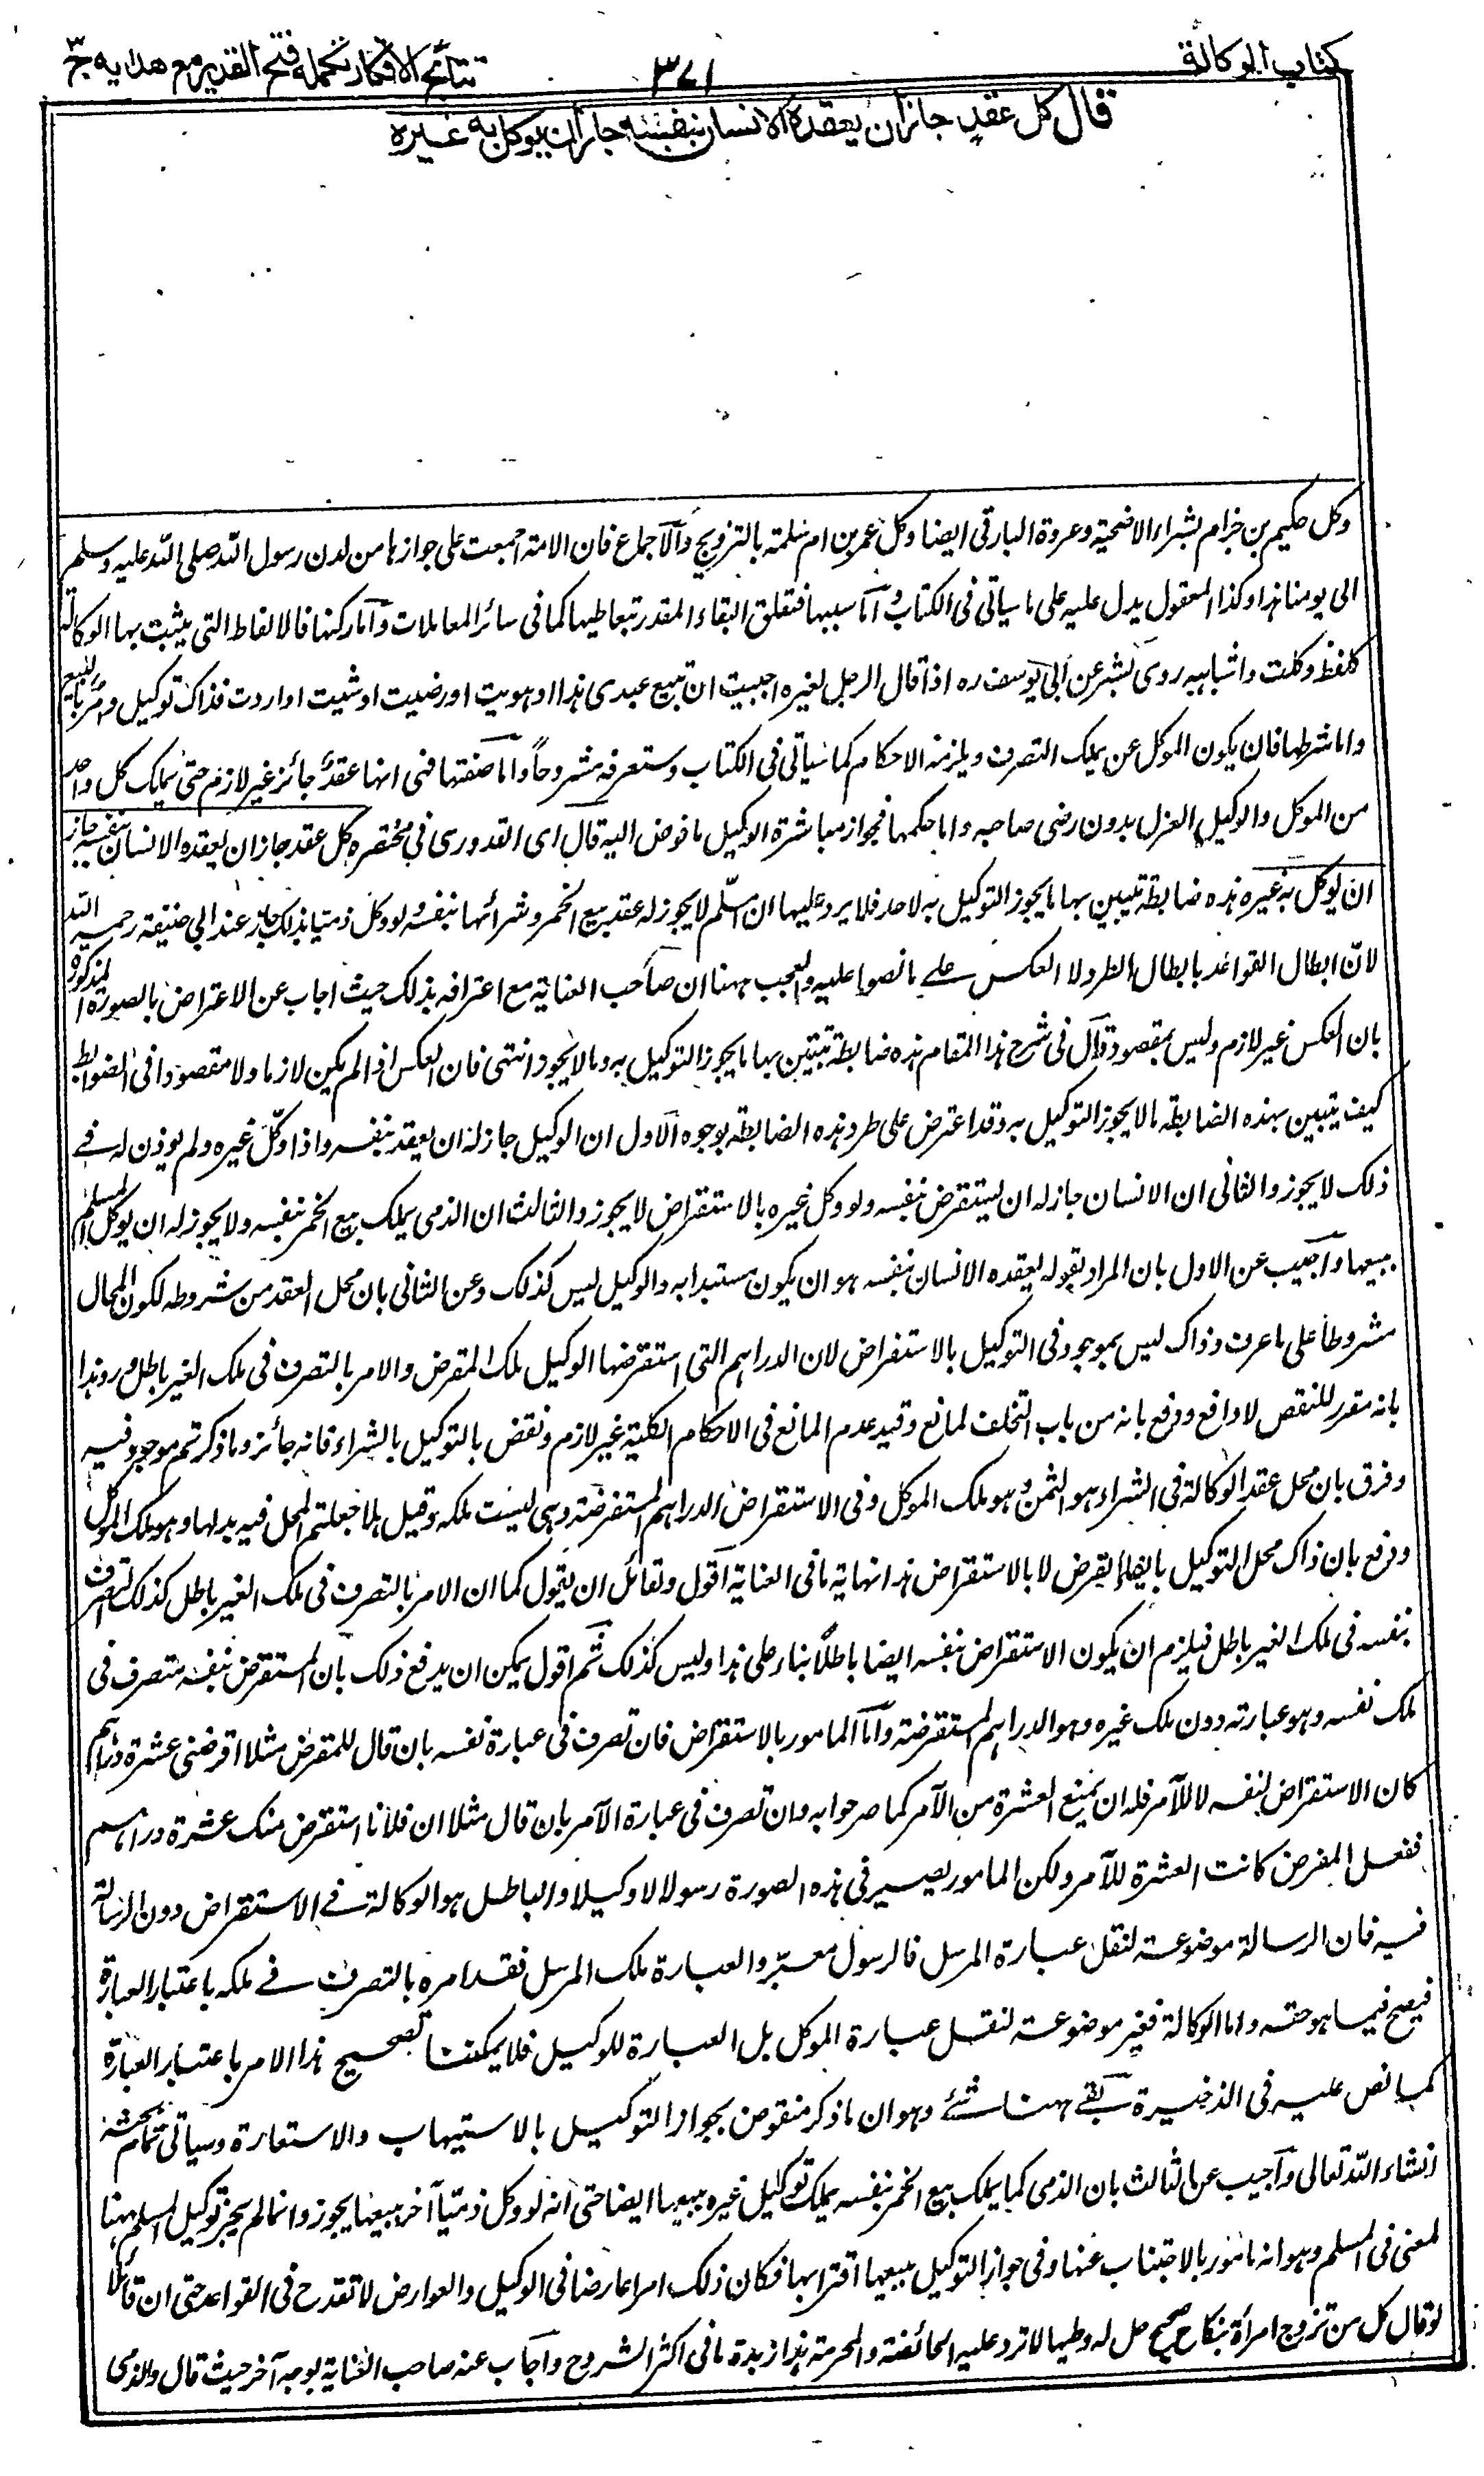 كتاب الوكالة
٣٧١
نتائج الافكار تكملة فتح القدير مع هدايه ج٣
قال كل عقد جاز ان يعقده الانسان بنفسه جاز ان يوكل به غيره
وكل حكيم بن حزام بشراء الاضحية وعروة البارقى ايضا وكل عمر بن ام سلمة بالتزويج والاجماع فان الامة اجمعت على جوازها من لدن رسول الله صلى الله عليه وسلم
الى يومنا هذا وكذا المعقول يدل عليه على ما سياتى فى الكتاب واما سببها فتعلق البقاء المقدر بتعاطيها كما فى سائر المعاملات واما ركنها فالالفاظ التى يثبت بها الوكالة
كلفظ وكلت واشباهه روى بشر عن ابى يوسف ره اذا قال الرجل لغيره احببت ان تبيع عبدى هذا او هويت او رضيت او شئت او اردت فذاك توكيل وامر بالبيع
واما شرطها فان يكون الموكل عن يملك التصرف ويلزمه الاحكام كما سياتى فى الكتاب وستعرفه مشروحاً واما صفتها فهى انها عقد جائز غير لازم حتى يملك كل واحد
من الموكل والوكيل العزل بدون رضى صاحبه واما حكمها فجواز مباشرة الوكيل ما فوض اليه قال اى القدورى فى مختصره كل عقد جاز ان يعقده الانسان بنفسه جاز
ان يوكل به غيره هذه ضابطة تتبين بها ما يجوز التوكيل به لاحد فلا يرد عليها ان المسلم لا يجوز له عقد بيع الخمر وشرائها بنفسه ولو وكل ذميا بذلك جاز عند ابى حنيفة رحمه الله
لان ابطال القواعد بابطال الطرد لا العكس على ما نصوا عليه والعجب ههنا ان صاحب العناية مع اعترافه بذلك حيث اجاب عن الاعتراض بالصورة المذكورة
بان العكس غير لازم وليس بمقصود قال فى شرح هذا المقام هذه ضابطة تتبين بها ما يجوز التوكيل به وما لا يجوز انتهى فان العكس اذا لم يكن لازما ولا مقصودا فى الضوابط
كيف يتبين بهذه الضابطة ما لا يجوز التوكيل به وقد اعترض على طرد هذه الضابطة بوجوه الاول ان الوكيل جاز له ان يعقد بنفسه واذا وكل غيره ولم يوذن له فى
ذلك لا يجوز والثانى ان الانسان جاز له ان يستقرض بنفسه ولو وكل غيره بالاستقراض لا يجوز والثالث ان الذمى يملك بيع الخمر بنفسه ولا يجوز له ان يوكل المسلم
ببيعها واجيب عن الاول بان المراد بقوله يعقده الانسان بنفسه هو ان يكون مستبدا به والوكيل ليس كذلك وعن الثانى بان محل العقد من شروطه لكون المحال
مشروطا على ما عرف وذاك ليس بموجود فى التوكيل بالاستقراض لان الدراهم التى استقرضها الوكيل ملك المقرض والامر بالتصرف فى ملك الغير باطل ورد هذا
بانه مقرر للنقض لا دافع ودفع بانه من باب التخلف لمانع وقيد عدم المانع فى الاحكام الكلية غير لازم ونقض بالتوكيل بالشراء فانه جائز وما ذكرتم موجود فيه
وفرق بان محل عقد الوكالة فى الشراء هو الثمن وهو ملك الموكل وفى الاستقراض الدراهم المستقرضة وهى ليست ملكه وقيل هلا جعلتم المحل فيه بدلها وهو ملك الموكل
ودفع بان ذاك محل التوكيل بايفاء القرض لا بالاستقراض هذا نهاية ما فى العناية اقول ولقائل ان يقول كما ان الامر بالتصرف فى ملك الغير باطل كذلك التصرف
بنفسه فى ملك الغير باطل فيلزم ان يكون الاستقراض بنفسه ايضا باطلاً بناء على هذا وليس كذلك ثم اقول يمكن ان يدفع ذلك بان المستقرض بنفسه متصرف فى
ملك نفسه وهو عبارته دون ملك غيره وهو الدراهم المستقرضة واما المامور بالاستقراض فان تصرف فى عبارة نفسه بان قال للمقرض مثلا اقرضنى عشرة دراهم
كان الاستقراض لنفسه لا للآمر فله ان يمنع العشرة من الآمر كما صرحوا به وان تصرف فى عبارة الآمر بان قال مثلا ان فلانا استقرض منك عشرة دراهم
ففعل المقرض كانت العشرة للآمر ولكن المامور يصير فى هذه الصورة رسولا لا وكيلا والباطل هو الوكالة فى الاستقراض دون الرسالة
فيه فان الرسالة موضوعة لنقل عبارة المرسل فالرسول معبر والعبارة ملك المرسل فقد امره بالتصرف فى ملكه باعتبار العبارة
فيصح فيما هو حقه واما الوكالة فغير موضوعة لنقل عبارة الموكل بل العبارة للوكيل فلا يمكننا تصحيح هذا الامر باعتبار العبارة
كما نص عليه فى الذخيرة بقى ههنا شئ وهو ان ما ذكر منقوض بجواز التوكيل بالاستيهاب والاستعارة وسياتى تمام بحثه
انشاء الله تعالى واجيب عن الثالث بان الذمى كما يملك بيع الخمر بنفسه يملك توكيل غيره ببيعها ايضا حتى انه لو وكل ذميا آخر ببيعها يجوز وانما لم يجز توكيل المسلم ههنا
لمعنى فى المسلم وهو انه مامور بالاجتناب عنها وفى جواز التوكيل ببيعها اقترابها فكان ذلك امرا عارضا فى الوكيل والعوارض لا تقدح فى القواعد حتى ان قائلا
لو قال كل من تزوج امرأة بنكاح صحيح حل له وطيها لا ترد عليه الحائضة والمحرمة هذا زبدة ما فى اكثر الشروح واجاب عنه صاحب العناية بوجه آخر حيث قال والذمى